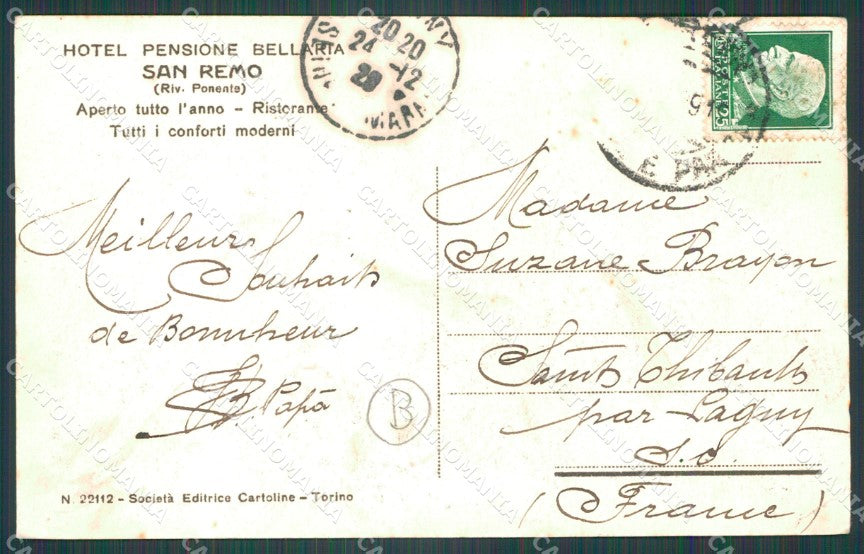 HOTEL PENSIONE BELLARIA
SAN REMO
(Riv. Ponente)
Aperto tutto l'anno - Ristorante
Tutti i conforti moderni
20 20
24 -12
28
MARNE
POSTE ITALIANE
25
E PAC
Meilleurs
Souhaits
de Bonnheur
Papa
B
Madame
Suzane Brayon
Saints Thibaults
par Lagny
S.O.
(France)
N. 22112 - Società Editrice Cartoline - Torino
CARTOLINOMANIA